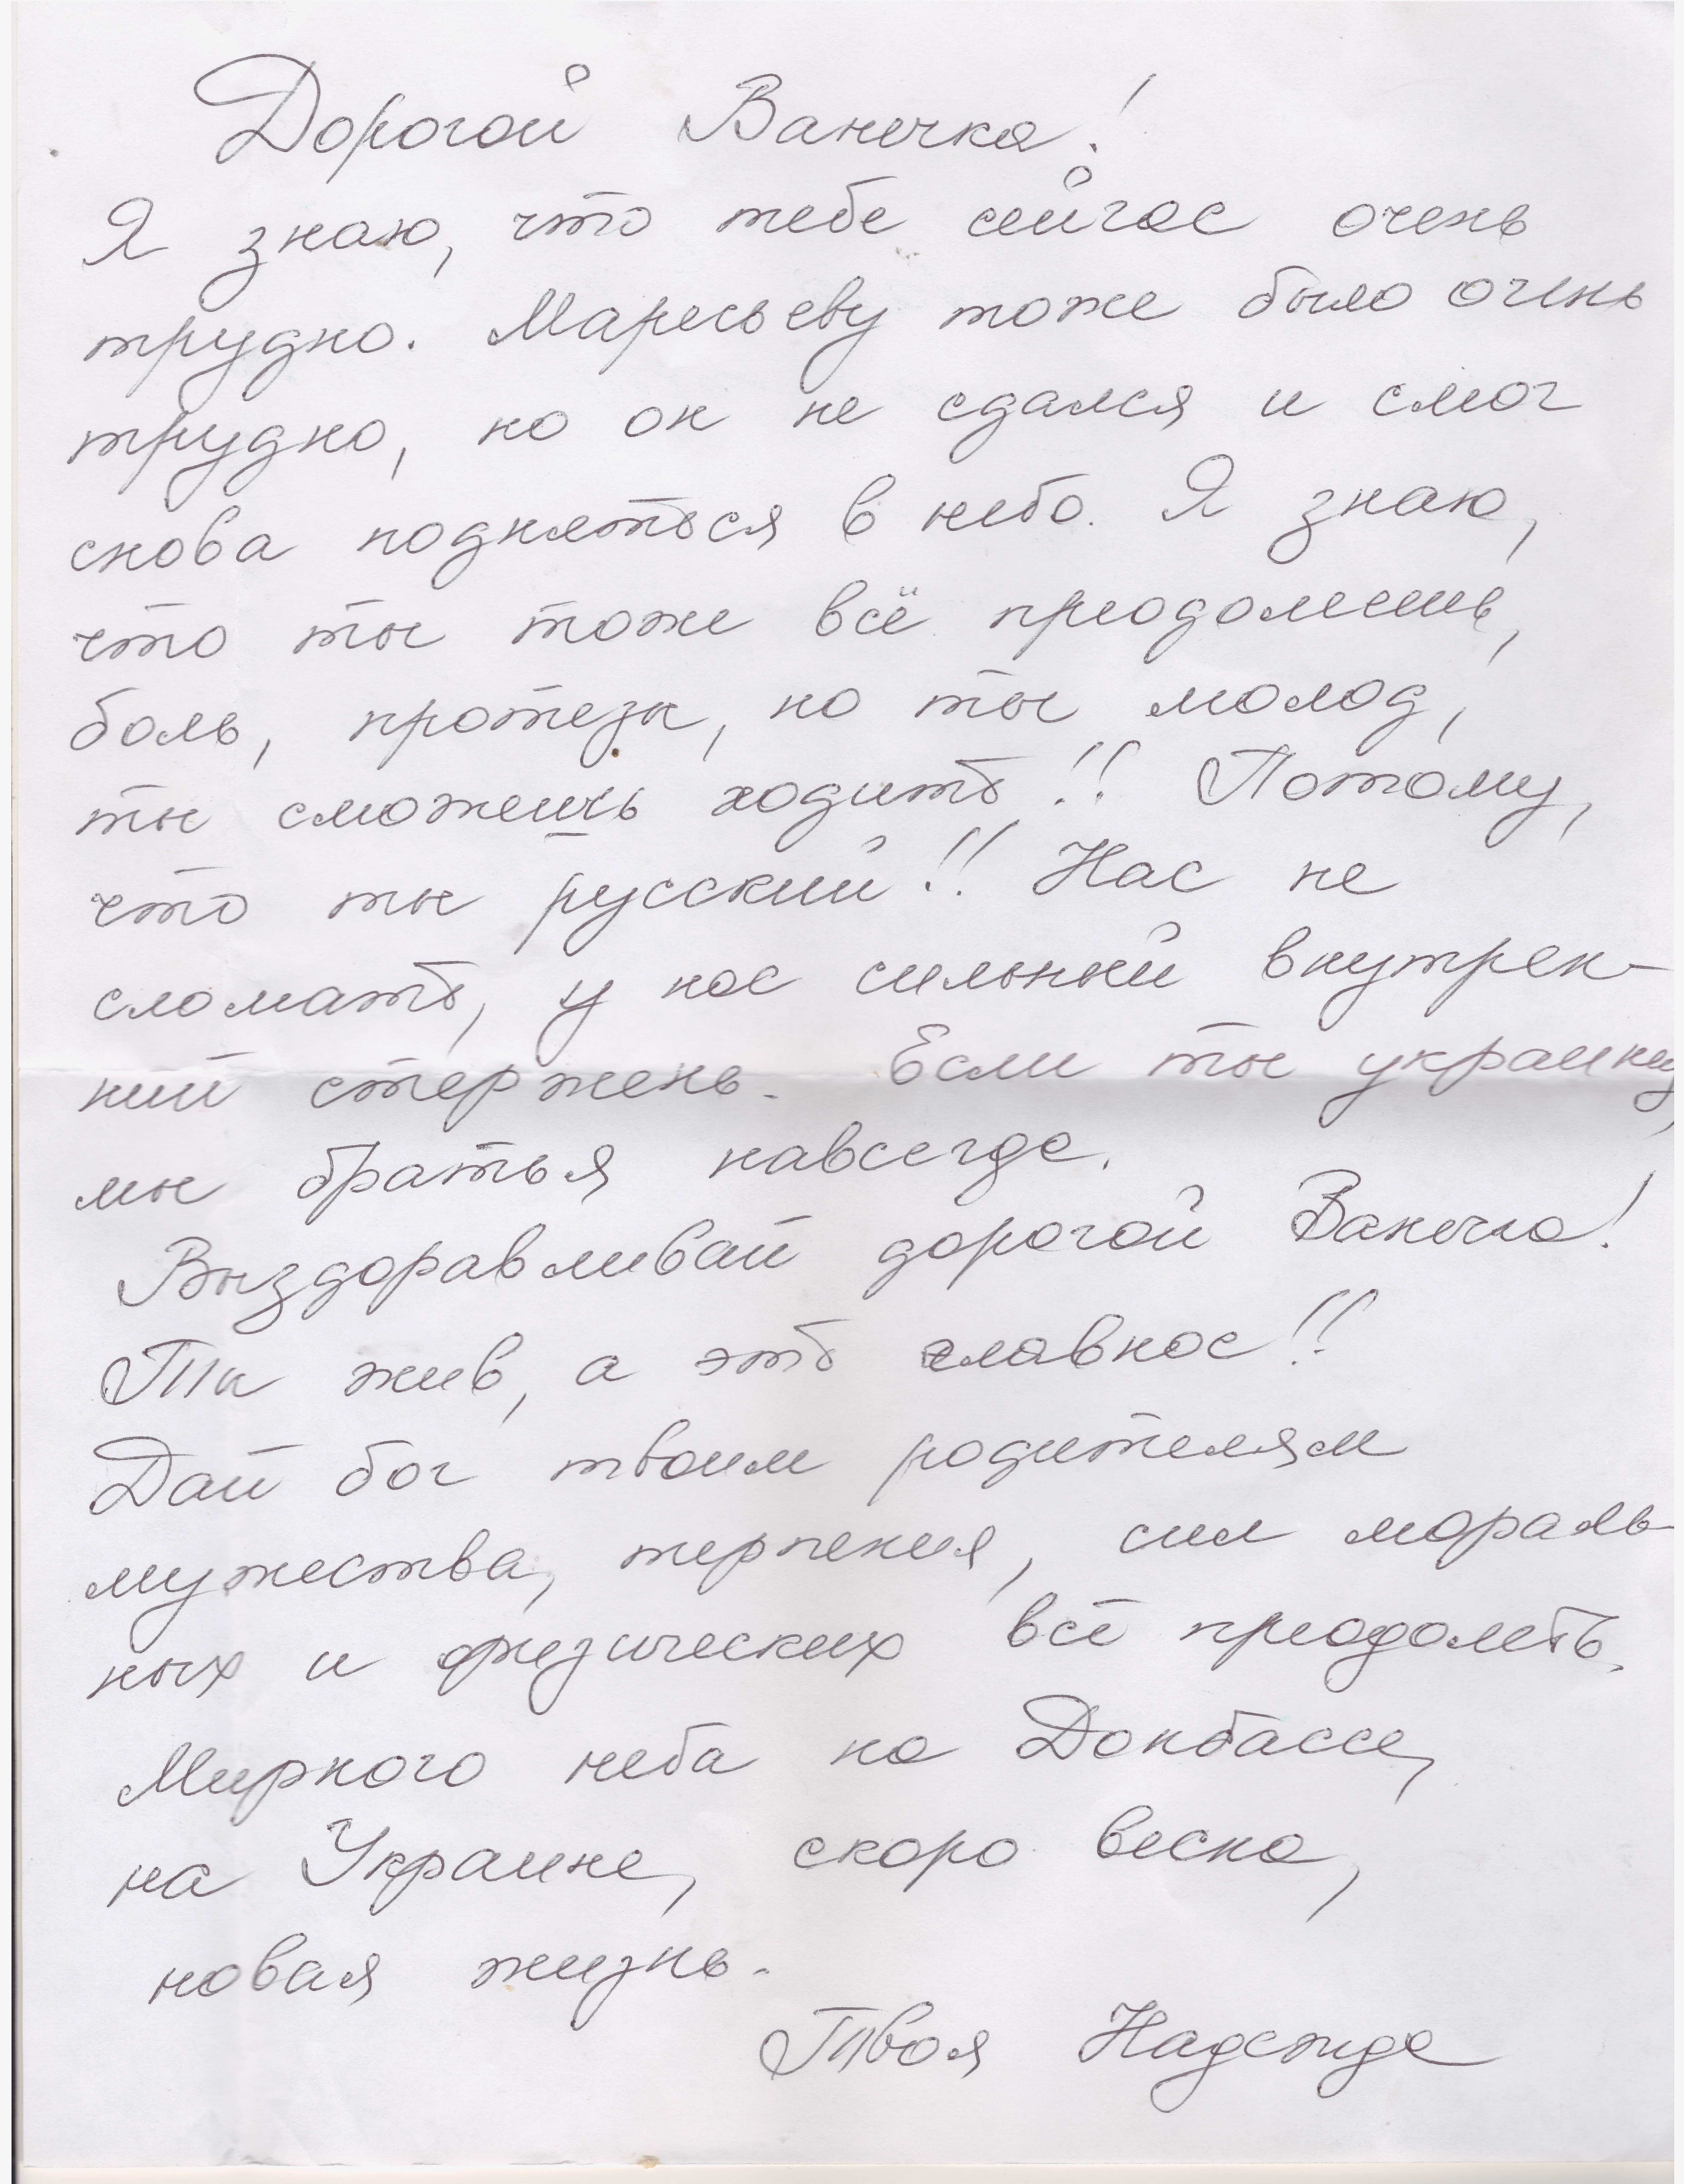 Дорогой Ванечка!
Я знаю, что тебе сейчас очень
трудно. Маресьеву тоже было очень
трудно, но он не сдался и смог
снова подняться в небо. Я знаю,
что ты тоже всё преодолеешь,
боль, протезы, но ты молод,
ты сможешь ходить!! Потому,
что ты русский!! Нас не
сломать, у нас сильный внутрен-
ний стержень. Если ты украинец,
мы братья навсегда.
Выздоравливай дорогой Ванечка!
Ты жив, а это главное!!
Дай бог твоим родителям
мужества, терпения, сил мораль-
ных и физических всё преодолеть.
Мирного неба на Донбассе,
на Украине, скоро весна,
новая жизнь.
Твоя Надежда